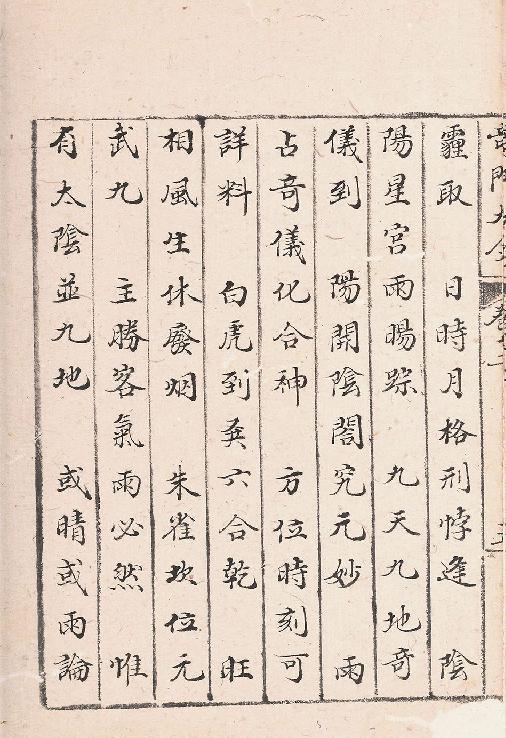 霾取　日時月格刑悖逢　陰
陽星宮雨暘踪　九天九地奇
儀到　陽開陰闔究元妙　雨
占奇儀化合神　方位時刻可
詳料　白虎到兌六合乾　旺
相風生休廢烟　朱雀坎位元
武九　主勝客氣雨必然　惟
有太陰並九地　或晴或雨論